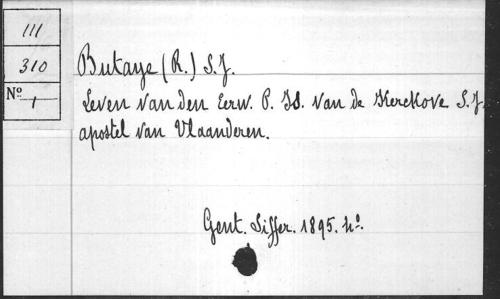 111
310
No 1
Butaye (R.) S.J.
Leven van den Eerw. P. Is. van de Kerckove S.J.
apostel van Vlaanderen.
Gent. Siffer. 1895. 4o.